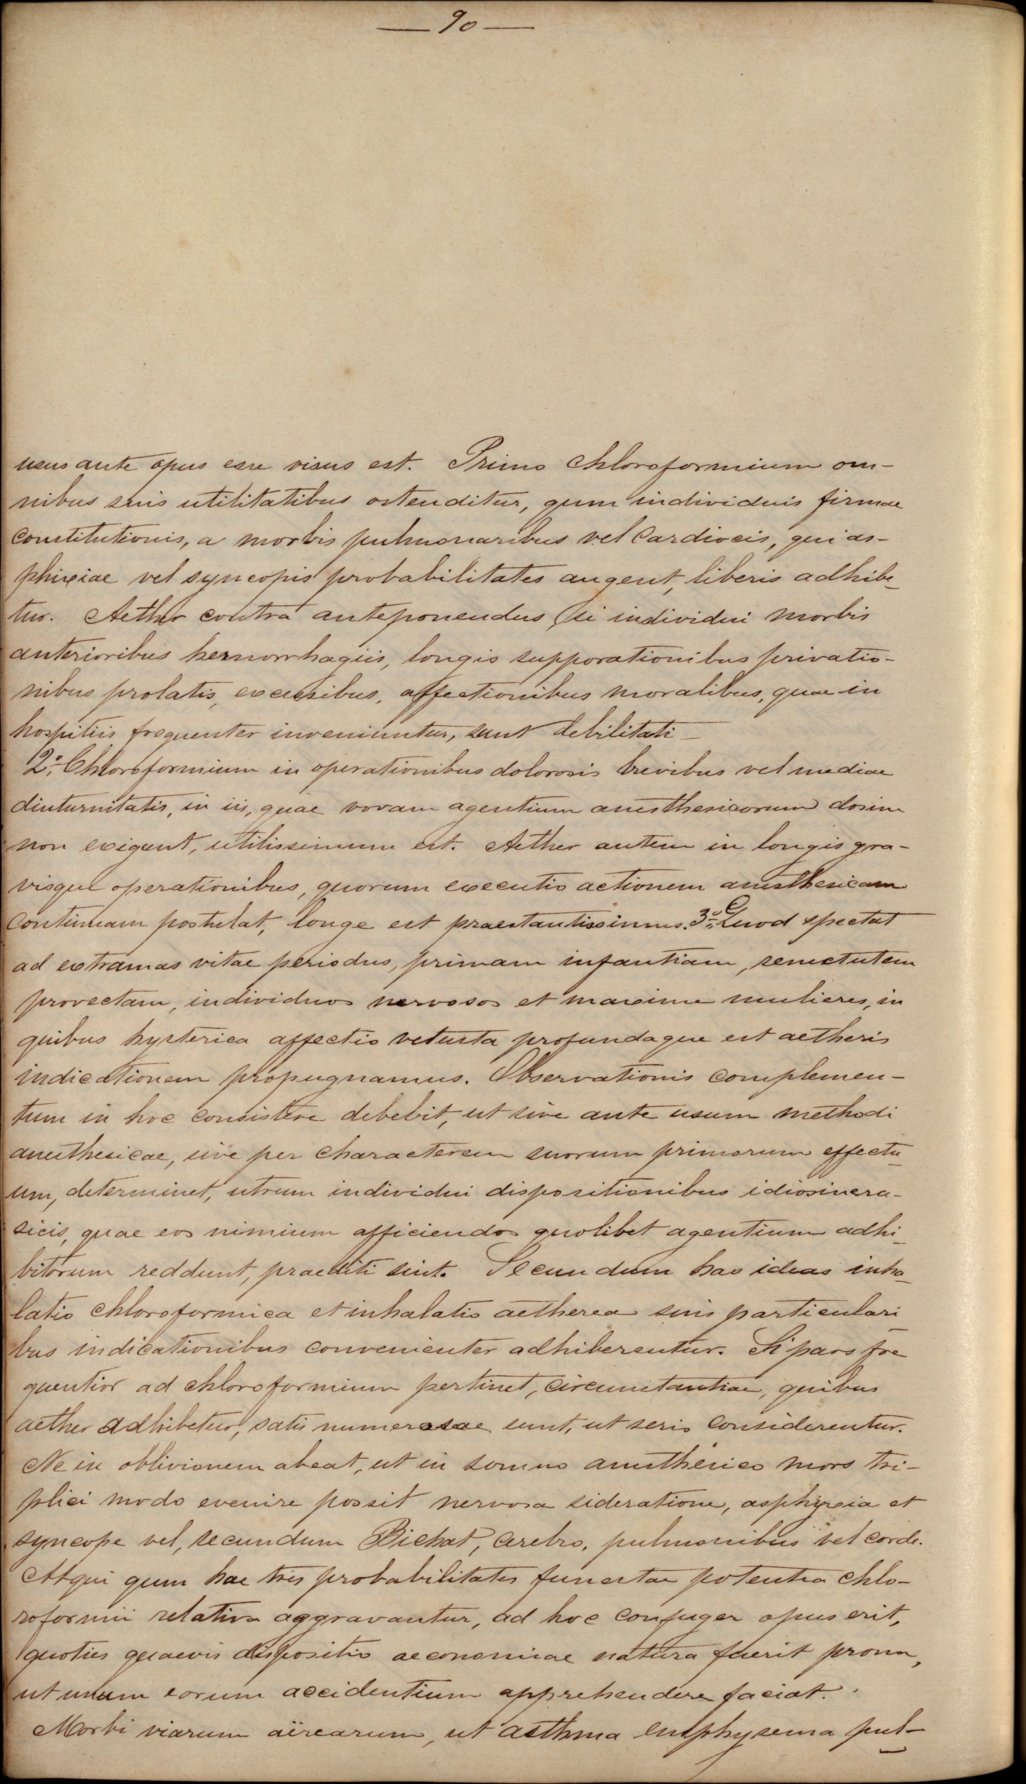 — 90 —
usus ante opus esse visus est. Primo Chloroformium om-
nibus suis utilitatibus ostenditur, quum individuis firmae
constitutionis, a morbis pulmonaribus vel cardiacis, qui as-
phixiae vel syncopis probabilitates augent, liberis adhibe-
tur. Aether contra anteponendus, si individui morbis
anterioribus hemorrhagiis, longis supporationibus privatio-
nibus prolatis, excessibus, affectionibus moralibus, quae in
hospitiis frequenter inveniuntur, sunt debilitati —
2.º Chloroformium in operationibus dolorosis brevibus vel mediae
diuturnitatis, in iis, quae novam agentium anesthesicorum dosim
non exigunt, utilissimum est. Aether autem in longis gra-
visque operationibus, quorum executio actionem anesthesicam
continuam postulat, longe est praestantissimus. 3.º Quod spectat
ad extramas vitae periodus, primam infantiam, senectutem
provectam, individuos nervosos et maxime mulieres, in
quibus hysterica affectio vetusta profundaque est aetheris
indicationem propugnamus. Observationis complemen-
tum in hoc consistere debebit, ut sive ante usum methodi
anesthesicae, sive per characterem suorum primorum effectu-
um, determinet, utrum individui dispositionibus idiosincra-
sicis, quae eos nimium afficiendos quolibet agentium adhi-
bitorum reddunt, praediti sint. Secundum has ideas inha-
latio chloroformica et inhalatio aetherea suis particulari
bus indicationibus convenienter adhiberentur. Si pars fre
quentior ad chloroformium pertinet, circumstantiae, quibus
aether adhibetur, satis numerosae sunt, ut serio considerentur.
Ne in oblivionem abeat, ut in somno anesthesico mors tri-
plici modo evenire possit nervosa sideratione, asphyxia et
syncope vel, secundum Bichat, cerebro, pulmonibus vel corde.
Atqui quum hae tres probabilitates funestae potentia chlo-
roformii relativa aggravantur, ad hoc confuger opus erit,
quoties quaevis dispositio aeconomiae natura fuerit prona,
ut unum eorum accidentium apprehendere faciat.
Morbi viarum aërearum, ut asthma emphysema pul-